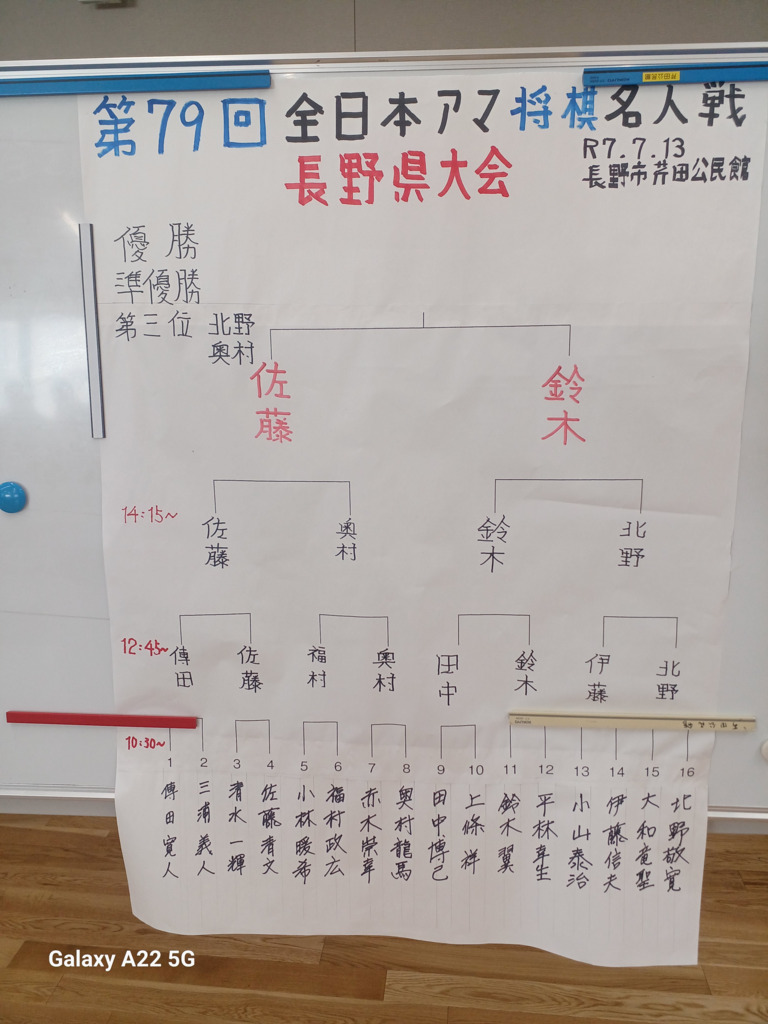 第79回 全日本アマ将棋名人戦
長野県大会
R7.7.13
長野市芹田公民館
優勝
準優勝
第三位 北野
奥村
佐藤 鈴木
14:15~
佐藤 奥村 鈴木 北野
12:45~
傳田 佐藤 福村 奥村 田中 鈴木 伊藤 北野
10:30~
1 2 3 4 5 6 7 8 9 10 11 12 13 14 15 16
傳田寛人
三浦義人
清水一輝
佐藤清文
小林暖希
福村政広
赤木崇幸
奥村龍馬
田中博己
上條祥
鈴木翼
平林幸生
小山泰治
伊藤信夫
大和竜聖
北野敬寛
芹田公民館
Galaxy A22 5G